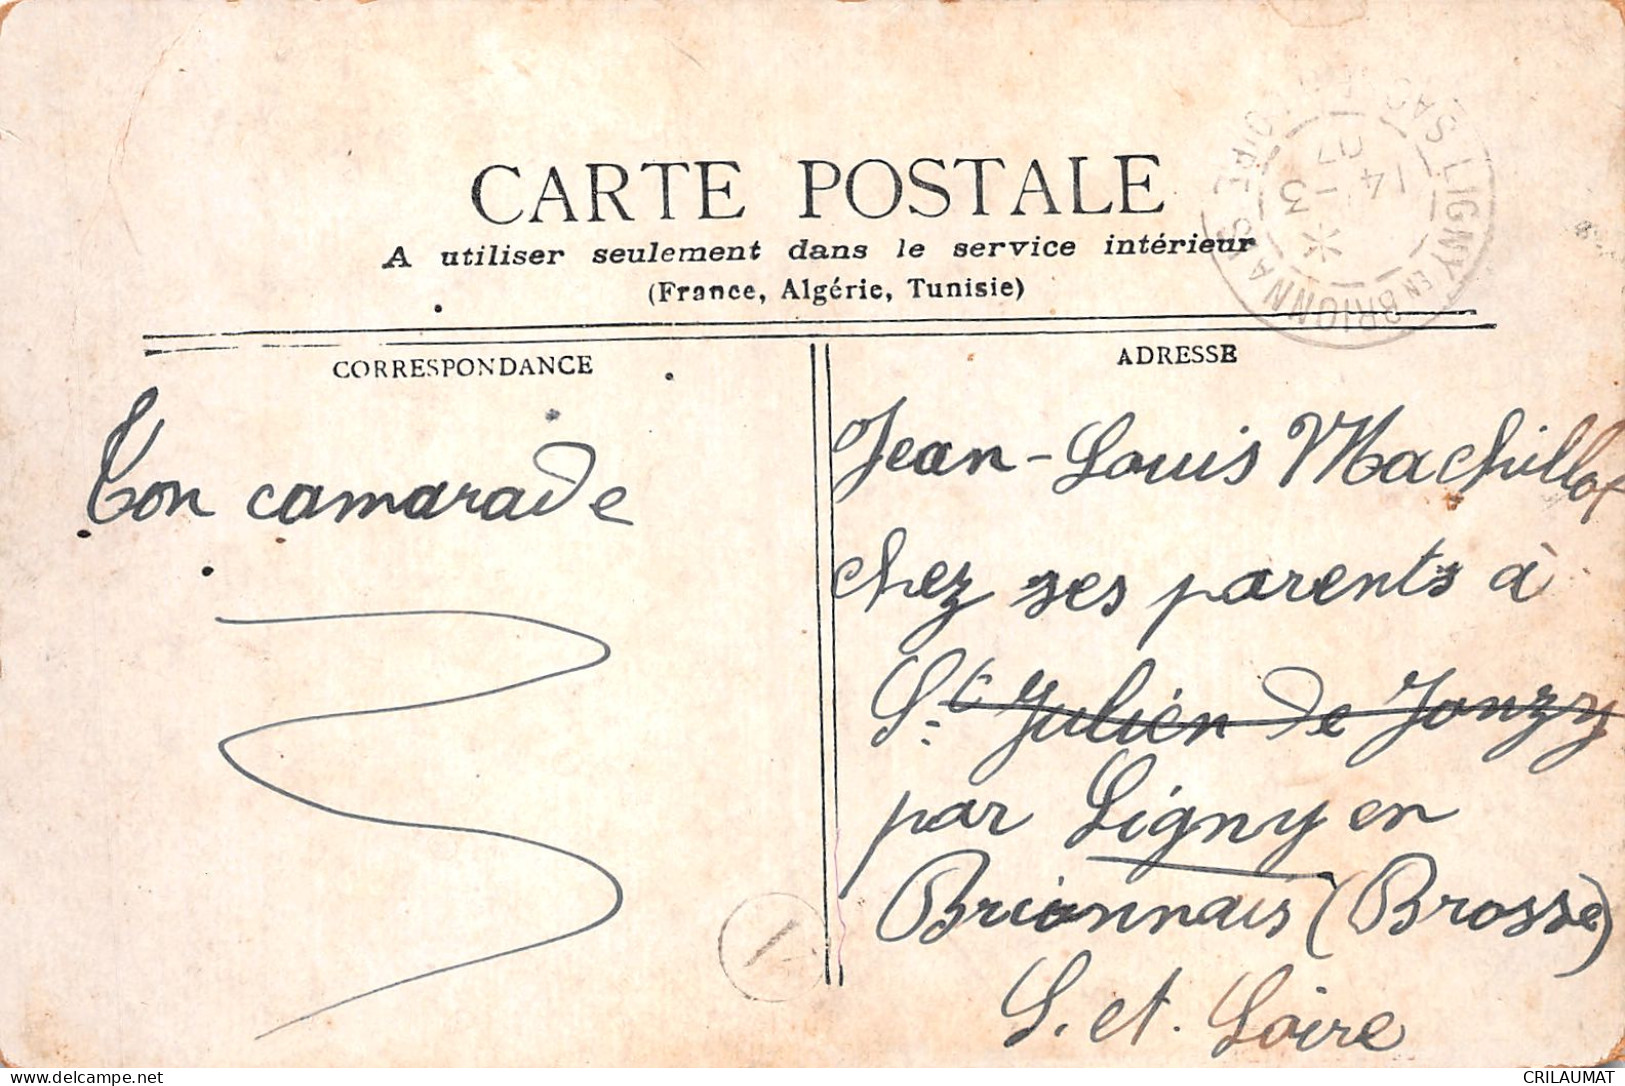 CARTE POSTALE
A utiliser seulement dans le service intérieur
(France, Algérie, Tunisie)
LIGNY EN BRIONNAIS
14 -3
07
CORRESPONDANCE
Ton camarade
ADRESSE
Jean-Louis Machillot
chez ses parents à
St Julien de Jonzy
par Ligny en
Brionnais (Brosse)
S. et. Loire
CRILAUMAT